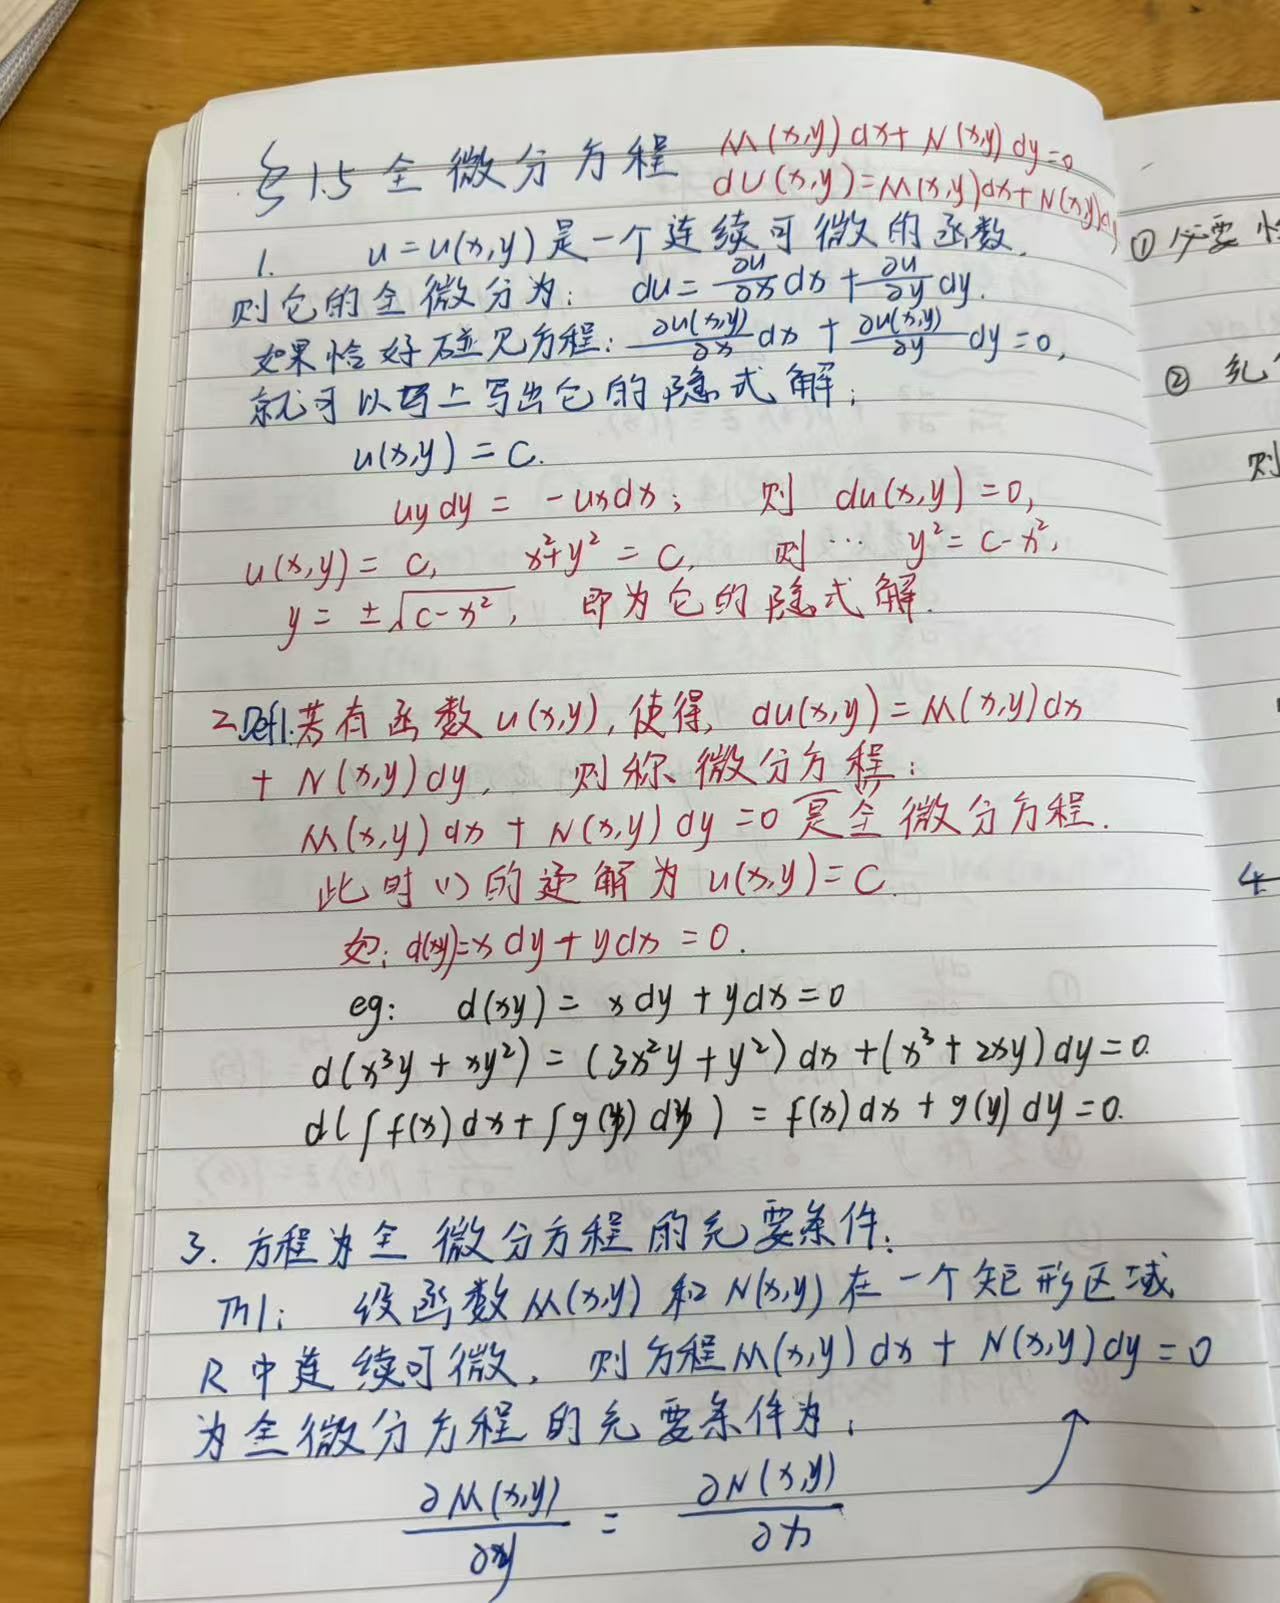 §1.5 全微分方程
M(x,y)dx+N(x,y)dy=0
dU(x,y)=M(x,y)dx+N(x,y)dy
1. u=u(x,y)是一个连续可微的函数.
则它的全微分为: du=∂u/∂x dx+∂u/∂y dy.
如果恰好碰见方程: ∂u(x,y)/∂x dx + ∂u(x,y)/∂y dy=0,
就可以马上写出它的隐式解;
u(x,y)=C.
uydy = -uxdx; 则 du(x,y)=0,
u(x,y)=C, x²+y²=C, 则… y²=C-x²,
y=±√(C-x²), 即为它的隐式解.
2.Def1.若有函数u(x,y),使得, du(x,y)=M(x,y)dx
+N(x,y)dy, 则称微分方程:
M(x,y)dx+N(x,y)dy=0是全微分方程.
此时(1)的通解为u(x,y)=C.
如: d(xy)=xdy+ydx=0.
eg: d(xy)=xdy+ydx=0
d(x³y+xy²)=(3x²y+y²)dx+(x³+2xy)dy=0.
d(∫f(x)dx+∫g(y)dy)=f(x)dx+g(y)dy=0.
3. 方程为全微分方程的充要条件:
Th1: 设函数M(x,y)和N(x,y)在一个矩形区域
R中连续可微, 则方程M(x,y)dx+N(x,y)dy=0
为全微分方程的充要条件为:
∂M(x,y)/∂y = ∂N(x,y)/∂x
① 必要性
②
则
4